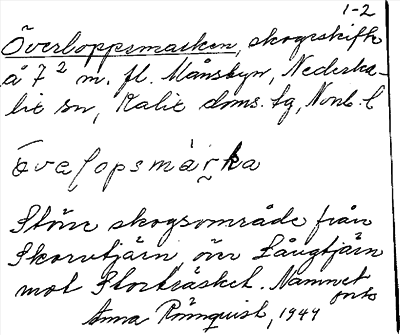 1-2
Överloppsmarken, skogsskifte
å 7² m. fl. Månsbyn, Nederka-
lix sn, Kalix doms. tg, Norrb. l
övefopsmárka
Större skogsområde från
Skorvtjärn, öv Långtjärn
mot Storträsket. Namnet
forts
Anna Rönnquist, 1944